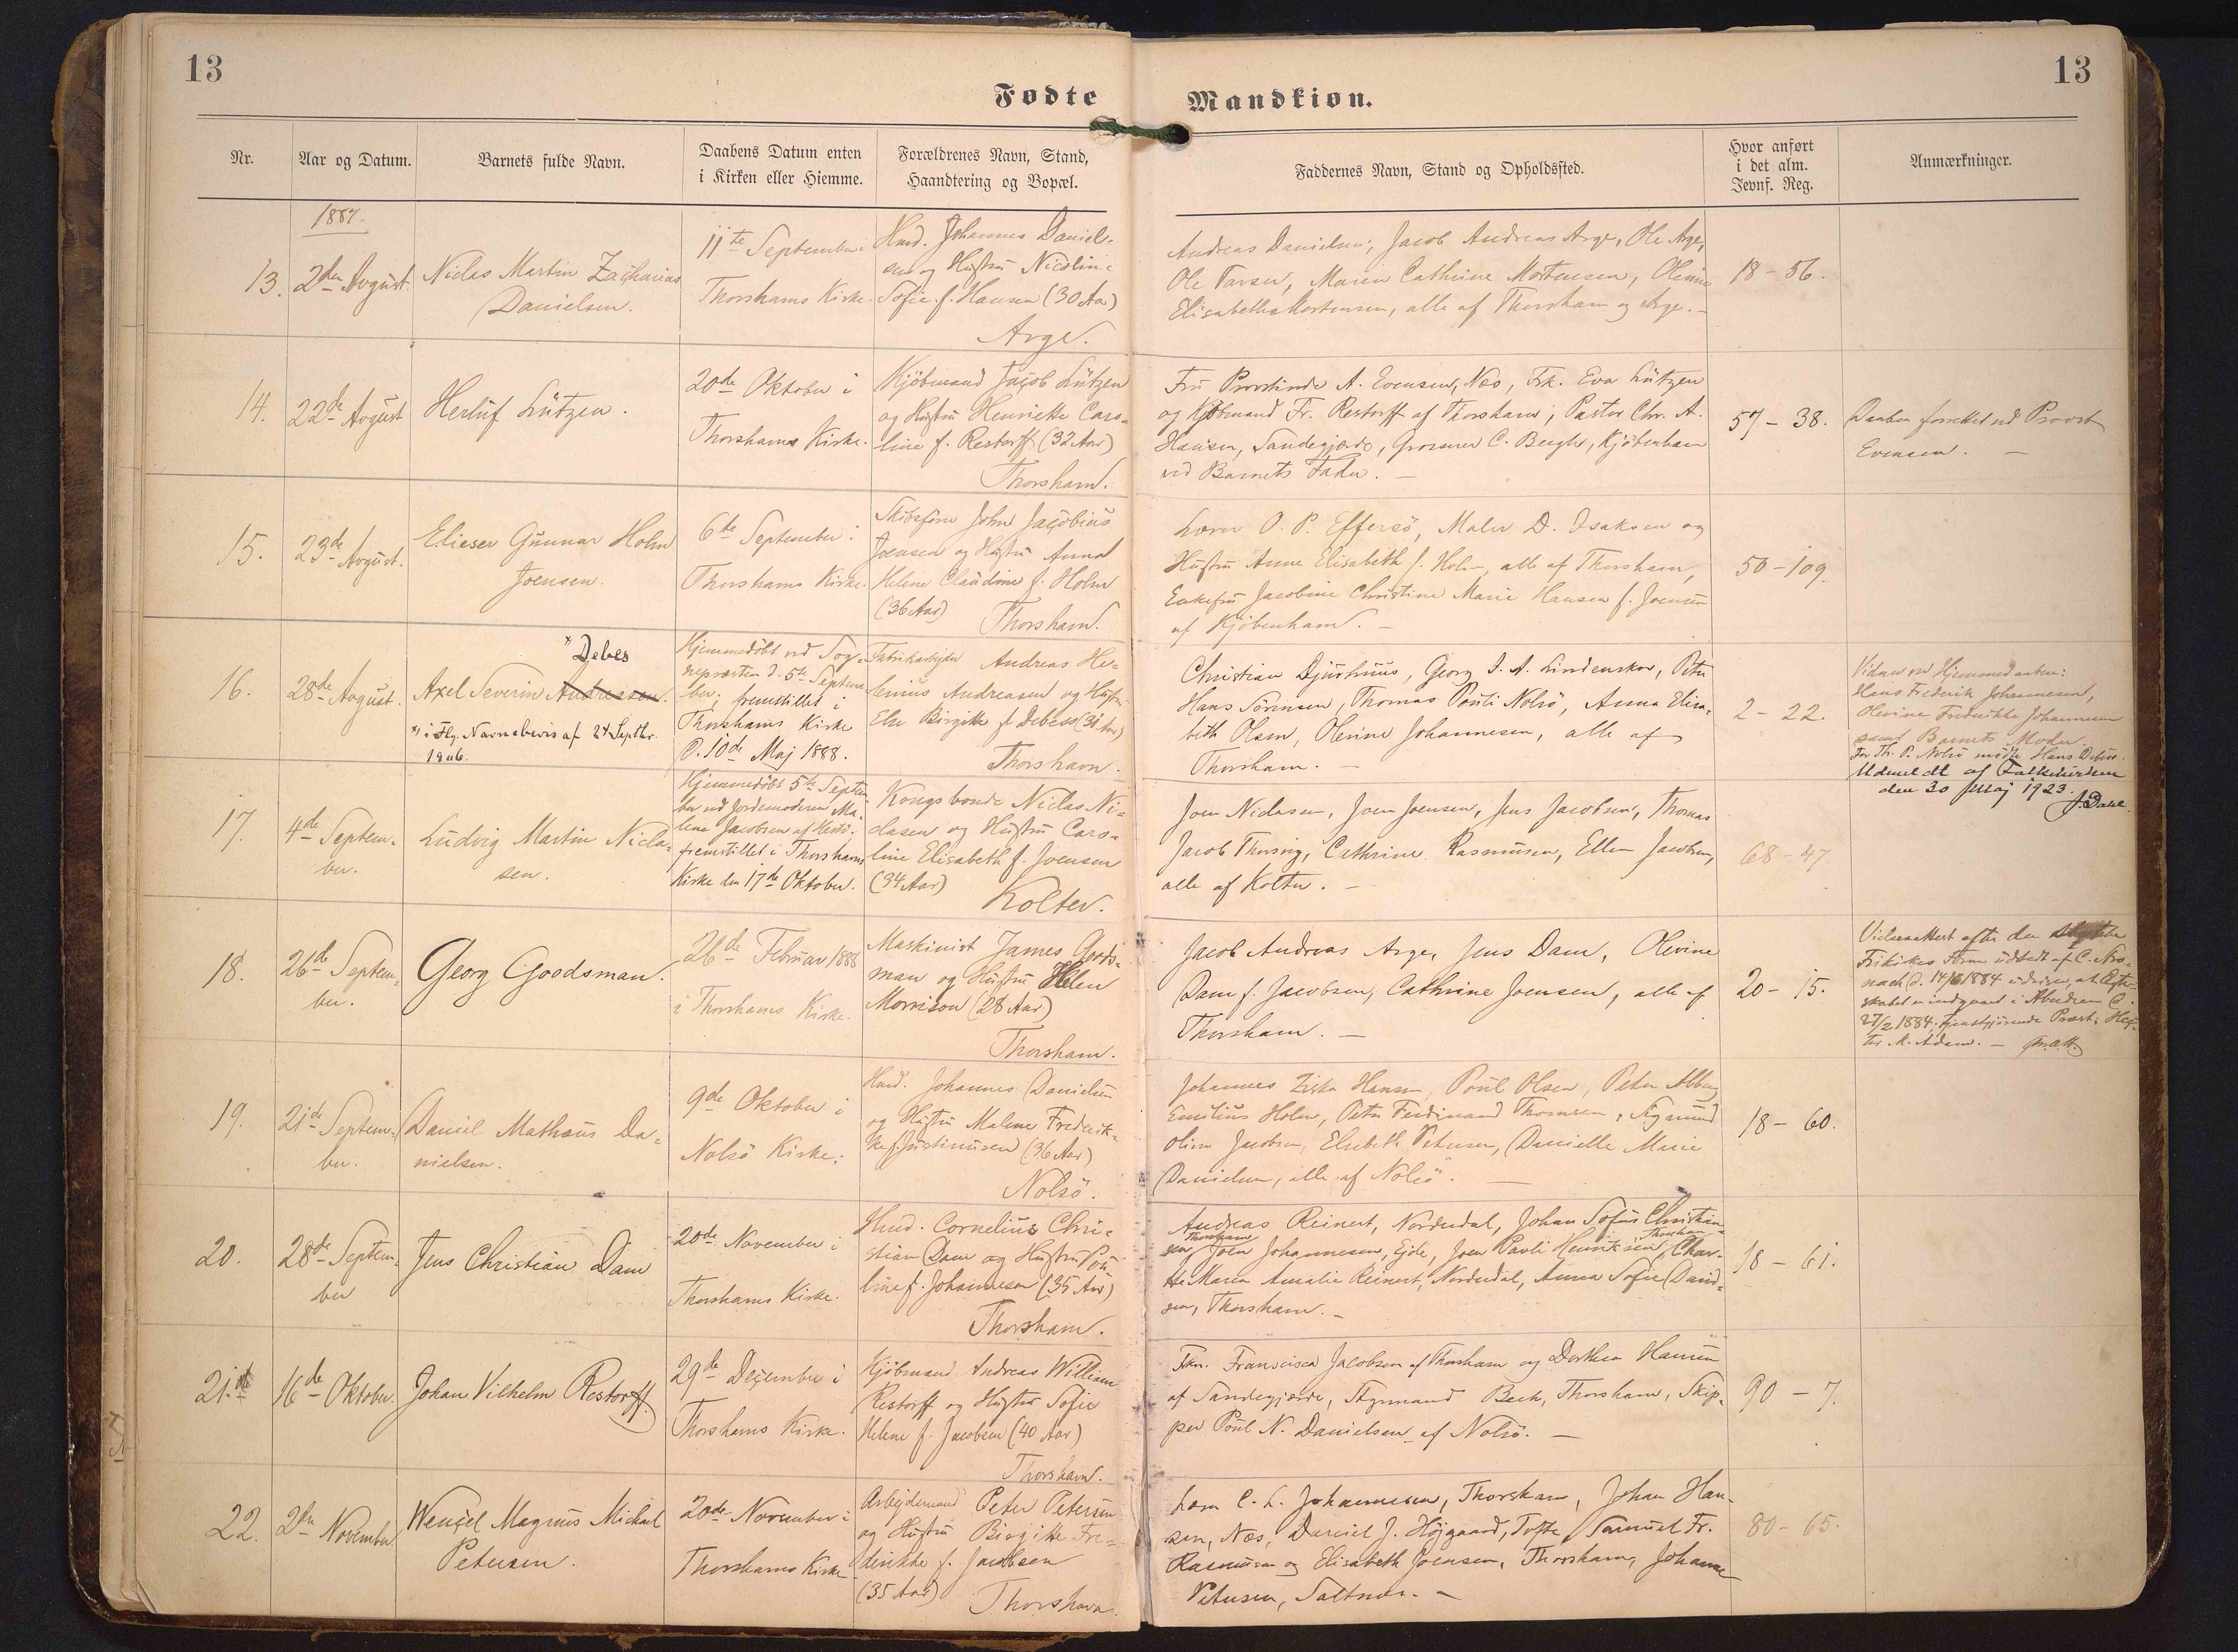 13
Fødte
Nr.
Aar og Datum.
Barnets fulde Navn.
Daabens Datum enten
i Kirken eller Hiemme.
Forældrenes Navn, Stand,
Haandtering og Bopæl.
13
Mandkiøn.
Faddernes Navn, Stand og Opholdssted.
Hvor anført
i det alm.
Jevnf. Reg.
Anmærkninger.
1887.
13.
2den August.
Niclas Martin Zacharias
Danielsen.
11te September i
Thorshavns Kirke.
Huusm. Johannes Daniel-
sen og Hustru Nicoline
Sofie f. Hansen (30 Aar)
Arge.
Andreas Danielsen, Jacob Andreas Arge, Ole Arge,
Ole Larsen, Maren Cathrine Mortensen, Olevine
Elisabeth Mortensen, alle af Thorshavn og Arge. -
18 - 56.
14.
22de August
Herluf Lützen.
20de Oktober i
Thorshavns Kirke.
Kjöbmand Jacob Lützen
og Hustru Henriette Caro-
line f. Restorff (32 Aar)
Thorshavn.
Fru Provstinde A. Evensen, Næs, Frk. Eva Lützen
og Kjöbmand Fr. Restorff af Thorshavn, Pastor Chr. A.
Hansen, Sandegjærde, Grosserer C. Bergh, Kjöbenhavn
ved Barnets Fader. -
57 - 38.
Daaben forrettet ved Provst
Evensen. -
15.
23de August.
Elieser Gunnar Holm
Joensen.
6te September i
Thorshavns Kirke.
Skibsförer John Jacobius
Joensen og Hustru Anna
Helene Claudine f. Holm
(36 Aar)
Thorshavn.
Lærer O. P. Effersö, Maler D. Isaksen og
Hustru Anne Elisabeth f. Holm, alle af Thorshavn,
Enkefru Jacobine Christine Marie Hansen f. Joensen
af Kjöbenhavn. -
50 - 109.
16.
28de August.
*) Debes
Axel Severin Andreasen.
*) i Flg. Navnebevis af 24 Septbr.
1906.
Hjemmedöbt ved Sog-
nepræsten d. 5te Septem-
ber; fremstillet i
Thorshavns Kirke
d. 10de Maj 1888.
Fabrikarbejder Andreas He-
lenius Andreasen og Hustru
Else Birgitte f. Debess (31 Aar)
Thorshavn.
Christian Djurhuus, Georg I. A. Lindenskov, Peter
Hans Sörensen, Thomas Pouli Nolsö, Anna Elisa-
beth Olsen, Olevine Johannesen, alle af
Thorshavn. -
2 - 22.
Vidner ved Hjemmedaaben:
Hans Frederik Johannesen,
Olevine Fredrikke Johannesen
samt Barnets Moder.
For Th. P. Nolsö mödte Hans Debess.
Udmeldt af Folkekirken
den 30 Maj 1923.
J. Dahl.
17.
4de Septem-
ber.
Ludvig Martin Nicla-
sen.
Hjemmedöbt 5te Septem-
ber ved Jordemoderen Ma-
lene Jacobsen af Hestö.
fremstillet i Thorshavns
Kirke den 17de Oktober.
Kongsbonde Niclas Ni-
clasen og Hustru Caro-
line Elisabeth f. Joensen
(34 Aar)
Kolter.
Joen Niclasen, Joen Joensen, Jens Jacobsen, Thomas
Jacob Thursvig, Cathrine Rasmussen, Ellen Jacobsen,
alle af Kolter. -
68 - 47.
18.
26de Septem-
ber.
Georg Goodsman.
26de Februar 1888
i Thorshavns Kirke.
Maskinist James Goods-
man og Hustru Helen
Morrison (28 Aar)
Thorshavn.
Jacob Andreas Arge, Jens Dam, Olevine
Dam f. Jacobsen, Cathrine Joensen, alle af
Thorshavn. -
20 - 15.
Vielsesattest efter den
Frikirkes Form udstedt af C.
1884 udviser, at Ægte-
skabet er indgaaet i Aberdeen d.
27/2 1884; tjenstgjörende Præst:
A. Adam. -
19.
21de Septem-
ber.
Daniel Mathæus Da-
nielsen.
9de Oktober i
Nolsö Kirke.
Huusm. Johannes Danielsen
og Hustru Malene Frederik-
ke f. Justinussen (36 Aar)
Nolsö.
Johannes Ziska Hansen, Poul Olsen, Peter
Emilius Holm, Peter Ferdinand Thomsen, Sigmund
Oliver Jacobsen, Elsebeth Petersen, Danielle Marie
Danielsen, alle af Nolsö. -
18 - 60.
20.
28de Septem-
ber
Jens Christian Dam
20de November i
Thorshavns Kirke.
Huusm. Cornelius Chri-
stian Dam og Hustru Pou-
line f. Johannesen (35 Aar)
Thorshavn.
Andreas Reinert, Norderdal, Johan Sofus Christian-
sen Thorshavn, Joen Johannesen, Ejde, Joen Pavli Henriksen, Thorshavn, Char-
Maria Amalie Reinert, Norderdal, Anna Sofie David-
sen, Thorshavn. -
18 - 61.
21.
16de Oktober.
Johan Vilhelm Restorff.
29de December i
Thorshavns Kirke.
Kjöbmand Andreas William
Restorff og Hustru Sofie
Helene f. Jacobsen (40 Aar)
Thorshavn.
Frkn. Francisca Jacobsen af Thorshavn og Dorthea Hansen
af Sandegjærde, Styrmand Beck, Thorshavn, Skip-
per Poul N. Danielsen af Nolsö. -
90 - 7.
22.
2den November
Wenzel Magnus Michael
Petersen.
20de November i
Thorshavns Kirke
Arbejdsmand Peter Petersen
og Hustru Birgitte Fre-
derikke f. Jacobsen
(35 Aar)
Thorshavn.
Joen C. L. Johannesen, Thorshavn, Johan Han-
sen, Næs, Daniel J. Höjgaard, Tofte, Samuel Fr.
Rasmussen og Elisabeth Joensen, Thorshavn, Johanne
Petersen, Saltnæs. -
80 - 65.